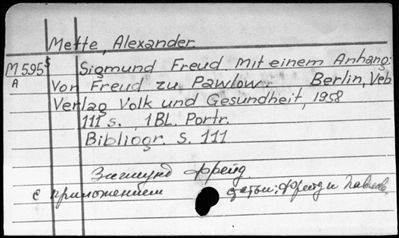 Mette, Alexander.
M595⁵ Sigmund Freud. Mit einem Anhang:
A Von Freud zu Pawlow. Berlin, Veb
Verlag Volk und Gesundheit, 1958
111 s., 1BL. Portr.
Bibliogr. S. 111
Зигмунд Фрейд
с приложением статьи: Фрейд и Павлов.